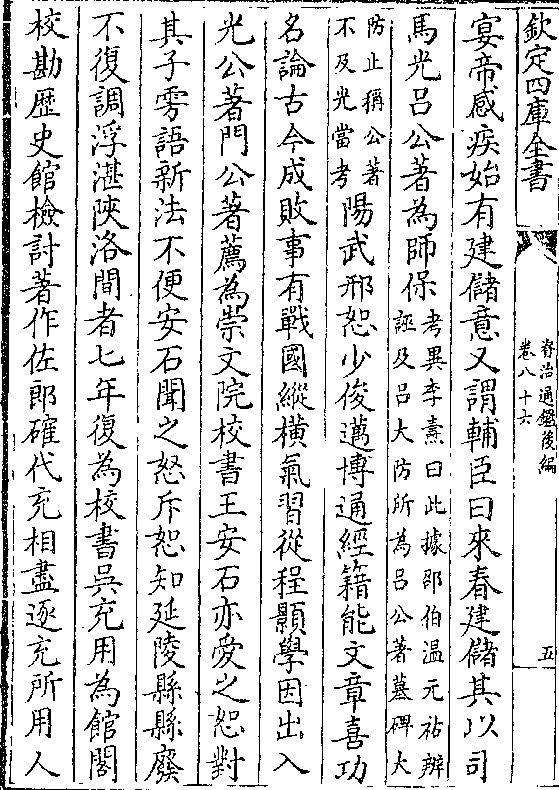 欽定四庫全書
資治通鑑後編
卷八十六
五
宴帝感疾始有建儲意又謂輔臣曰來春建儲其以司
馬光吕公著為師保考異李燾曰此據邵伯温元祐辨
誣及吕大防所為吕公著墓碑大
防止稱公著
不及光當考陽武邢恕少俊邁博通經籍能文章喜功
名論古今成敗事有戰國縱橫氣習從程顥學因出入
光公著門公著薦為崇文院校書王安石亦愛之恕對
其子雱語新法不便安石聞之怒斥恕知延陵縣縣廢
不復調浮湛陝洛間者七年復為校書吳充用為館閣
校勘歷史館檢討著作佐郎確代充相盡逐充所用人